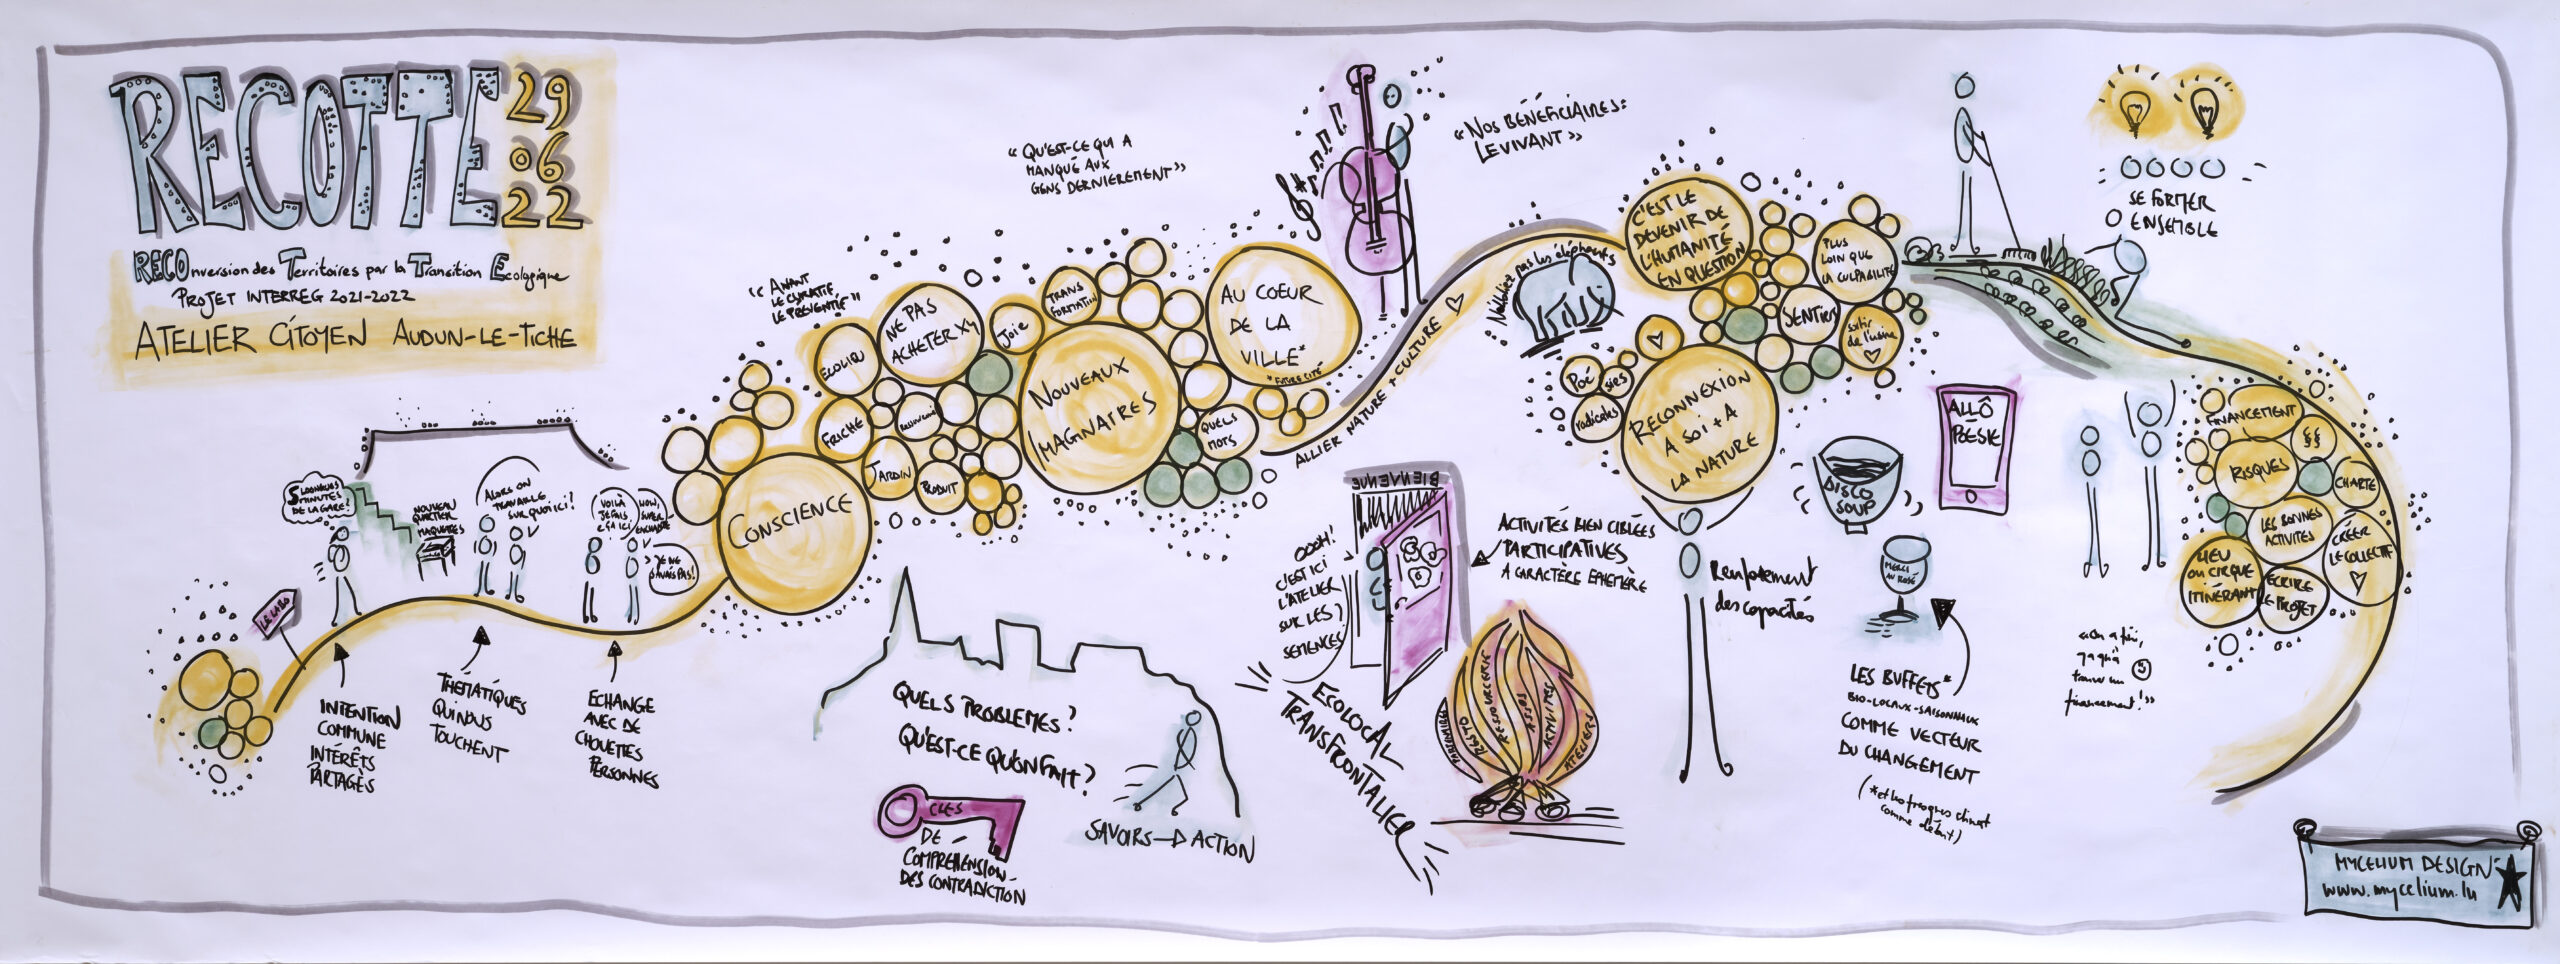 RECOTTE
29
06
22
RECOnversion des Territoires par la Transition Ecologique
PROJET INTERREG 2021-2022
ATELIER CITOYEN AUDUN-LE-TICHE
5 LONGUES
MINUTES
DE LA GARE!
NOUVEAU
QUARTIER
MAQUETTES
ALORS ON
TRAVAILLE
SUR QUOI ICI?
VOILÀ
JE FAIS
ÇA ICI
WOW,
SUPER
JE NE
SAVAIS PAS!
LE LABO
INTENTION
COMMUNE
INTÉRÊTS
PARTAGÉS
THÉMATIQUES
QUI NOUS
TOUCHENT
ECHANGE
AVEC DE
CHOUETTES
PERSONNES
CONSCIENCE
"AVANT
LE CURATIF
LE PRÉVENTIF"
ECOLIEU
NE PAS
ACHETER XY
JOIE
TRANS
FORMATION
FRICHE
JARDIN
PRODUIT
NOUVEAUX
IMAGINAIRES
AU COEUR
DE LA
VILLE*
* FUTURE CITÉ
QUELS
MOTS
"QU'EST-CE QUI A
MANQUÉ AUX
GENS DERNIEREMENT"
"NOS BÉNÉFICIAIRES:
LE VIVANT"
ALLIER NATURE + CULTURE ♡
N'oubliez pas les éléphants
C'EST LE
DEVENIR DE
L'HUMANITÉ
EN QUESTION
PLUS
LOIN QUE
LA CULPABILITÉ
SENTIERS
sortir
de l'usine
♡
POÉ
SIES
radicales
RECONNEXION
A SOI + A
LA NATURE
SE FORMER
ENSEMBLE
QUELS PROBLEMES?
QU'EST-CE QU'ON FAIT?
CLES
DE
COMPRÉHENSION
DES CONTRADICTION
SAVOIRS → ACTION
BIENVENUE
OOOH!
C'EST ICI
L'ATELIER
SUR LES
SEMENCES?
ECOLOCAL
TRANSFRONTALIER
ACTIVITÉS BIEN CIBLÉES
PARTICIPATIVES
A CARACTÈRE EPHEMÈRE
RÉSTO
RESSOURCERIE
ACTIVITÉS
ATELIERS
Renforcement
des capacités
DISCO
SOUP
ALLÔ
POÉSIE
MERCI
AU ROSÉ
LES BUFFETS*
BIO-LOCAUX-SAISONNAUX
COMME VECTEUR
DU CHANGEMENT
(*et les fresques climat
comme début)
FINANCEMENT
§§
RISQUES
CHARTE
LES BONNES
ACTIVITES
CRÉER
LE COLLECTIF
♡
LIEU
OU CIRQUE
ITINÉRANT
ECRIRE
LE PROJET
"On a fini,
y a qu'à
trouver un
financement!"
MYCELIUM DESIGN
www.mycelium.lu